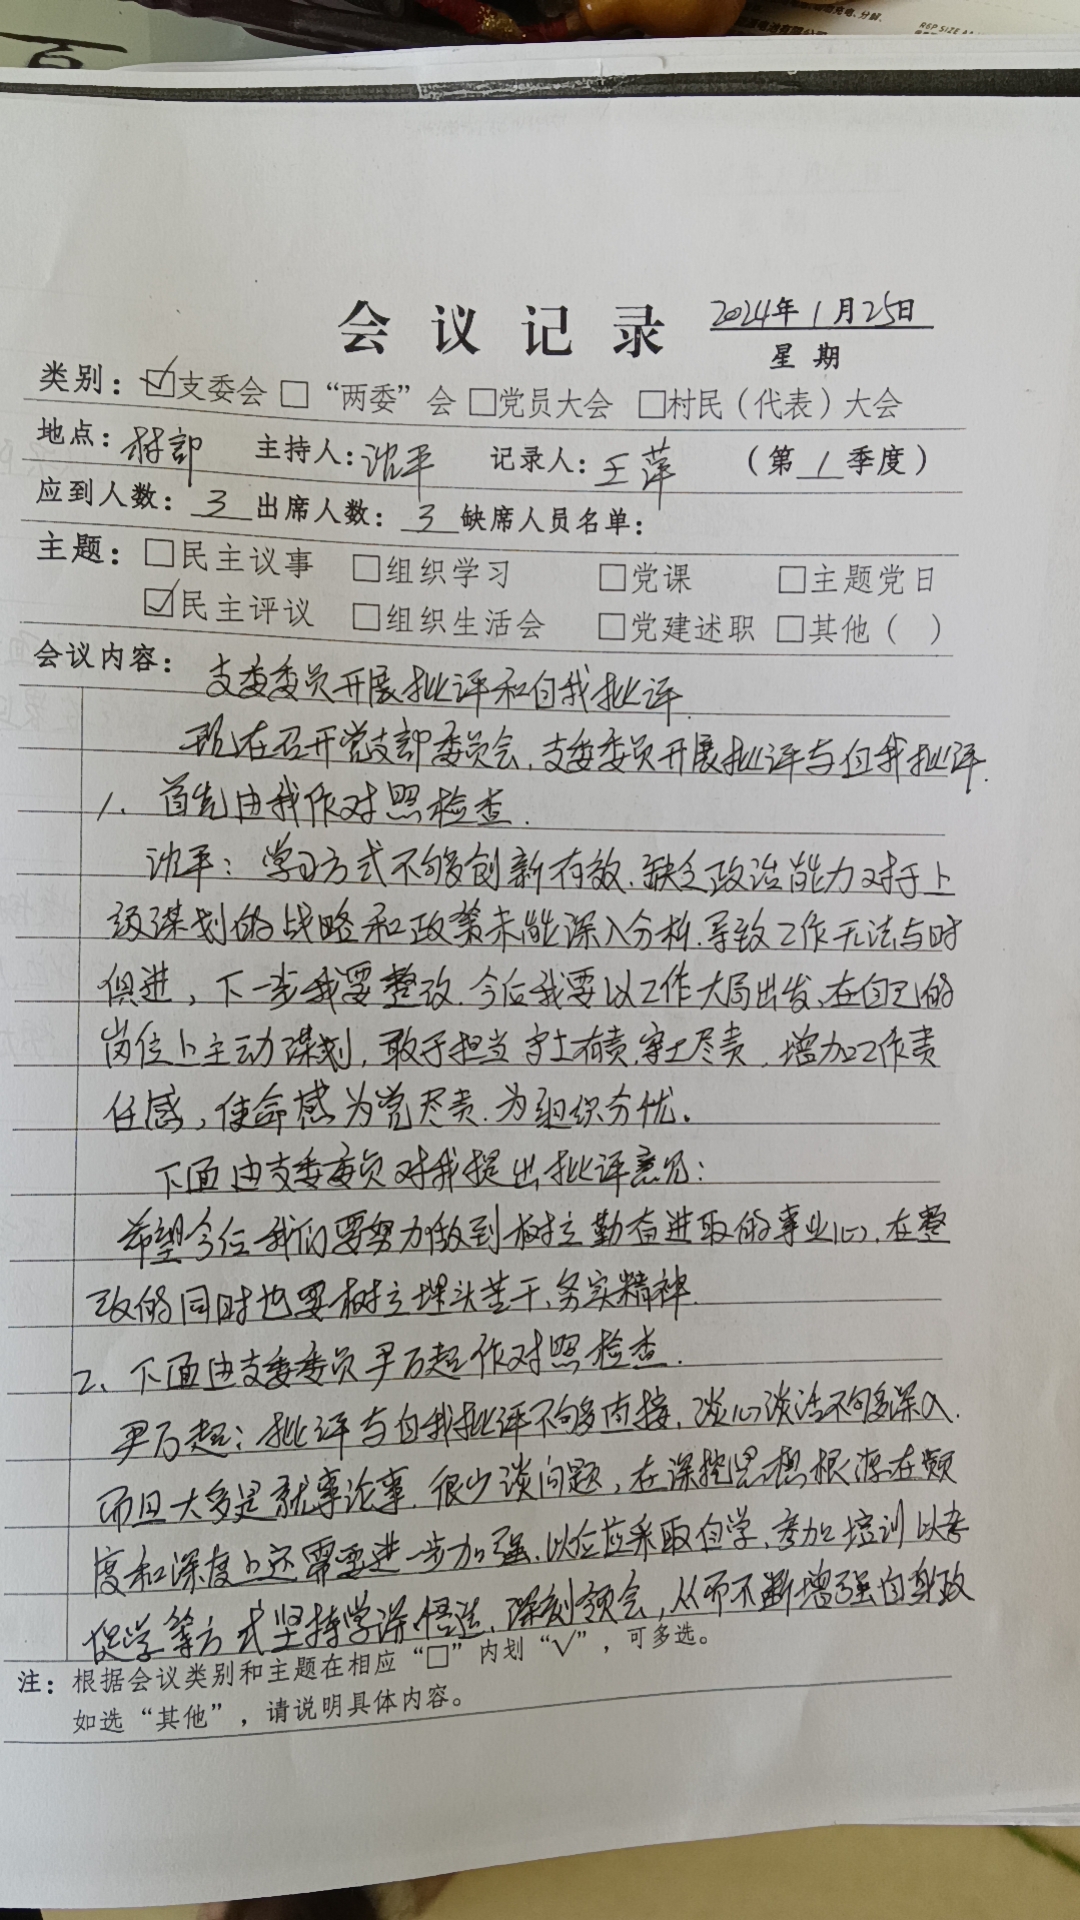 R6P SIZE
会议记录 2024年1月25日
星期
类别：☑支委会 □“两委”会 □党员大会 □村民（代表）大会
地点：村部 主持人：沈平 记录人：王萍 （第1季度）
应到人数：3 出席人数：3 缺席人员名单：
主题：□民主议事 □组织学习 □党课 □主题党日
☑民主评议 □组织生活会 □党建述职 □其他（ ）
会议内容：支委委员开展批评和自我批评
现在召开党支部委员会，支委委员开展批评与自我批评.
1、首先由我作对照检查.
沈平：学习方式不够创新有效.缺乏政治能力对于上
级谋划的战略和政策未能深入分析.导致工作无法与时
俱进，下一步我要整改.今后我要以工作大局出发、在自己的
岗位上主动谋划，敢于担当守土有责.守土尽责，增加工作责
任感，使命感为党尽责.为组织分忧。
下面由支委委员对我提出批评意见：
希望今后我们要努力做到树立勤奋进取的事业心，在整
改的同时也要树立埋头苦干、务实精神.
2、下面由支委委员尹万超作对照检查.
尹万超：批评与自我批评不够直接，谈心谈话不够深入.
而且大多是就事论事.很少谈问题，在深挖思想根源在频
度和深度上还需要进一步加强.以后应采取自学、参加培训以考
促学等方式坚持学深悟透、深刻领会，从而不断增强自身政
注：根据会议类别和主题在相应“□”内划“√”，可多选。
如选“其他”，请说明具体内容。